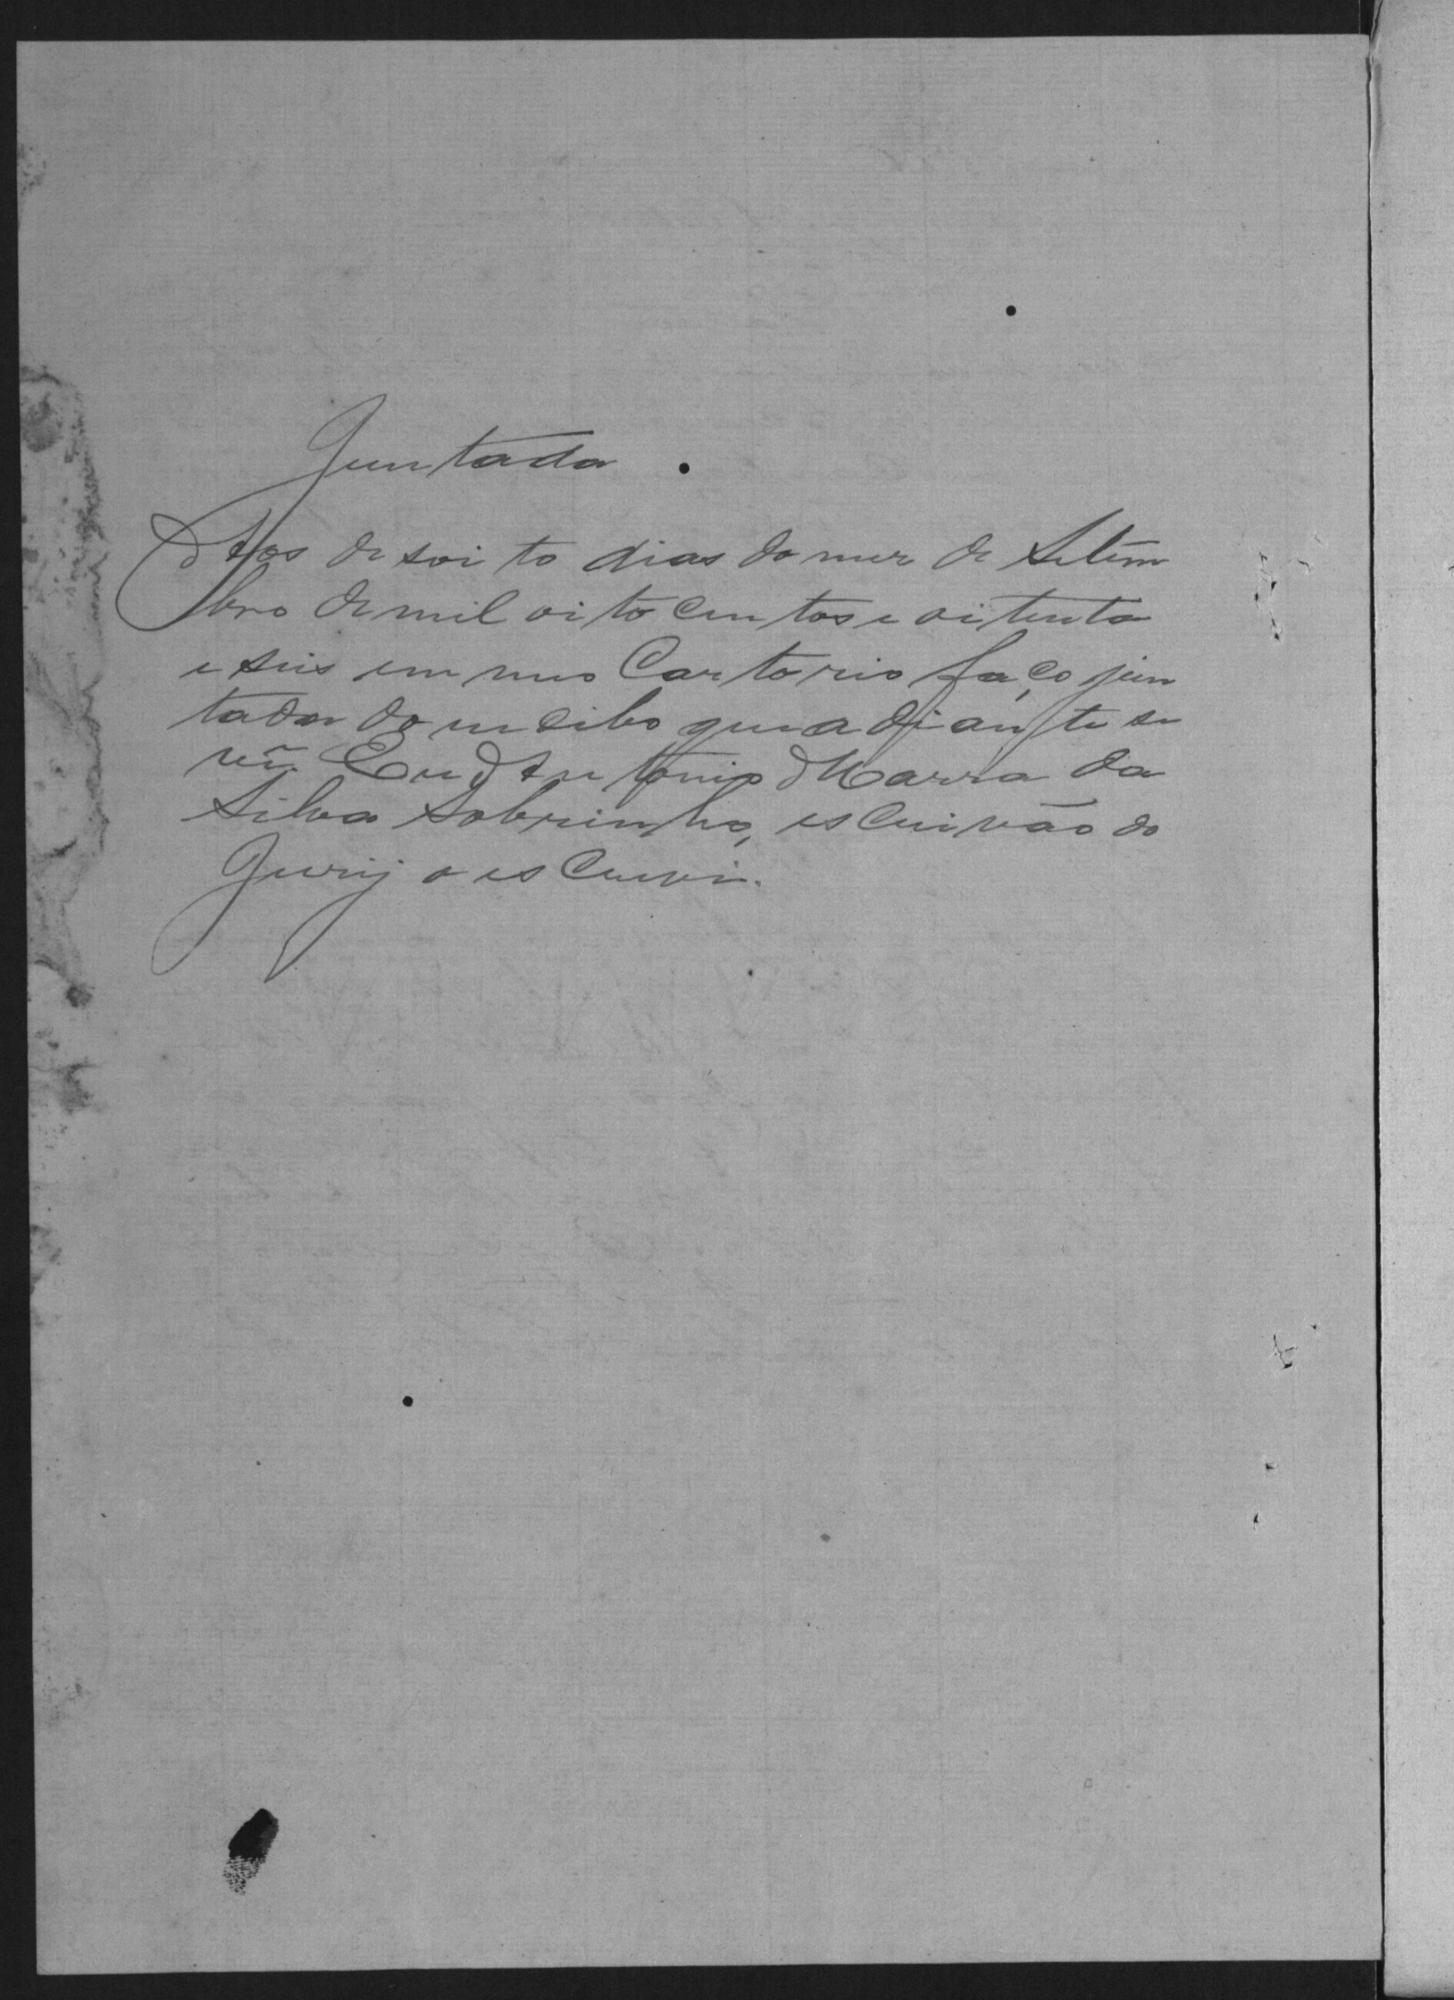 Juntada
Aos desoito dias do mez de Setem
bro de mil oito centos e oitenta
e seis em meo Cartorio faço jun
tada do recibo que a diante se
vê. Eu Antonio Marra da
Silva Sobrinho, escrivão do
Jury o escrevi.